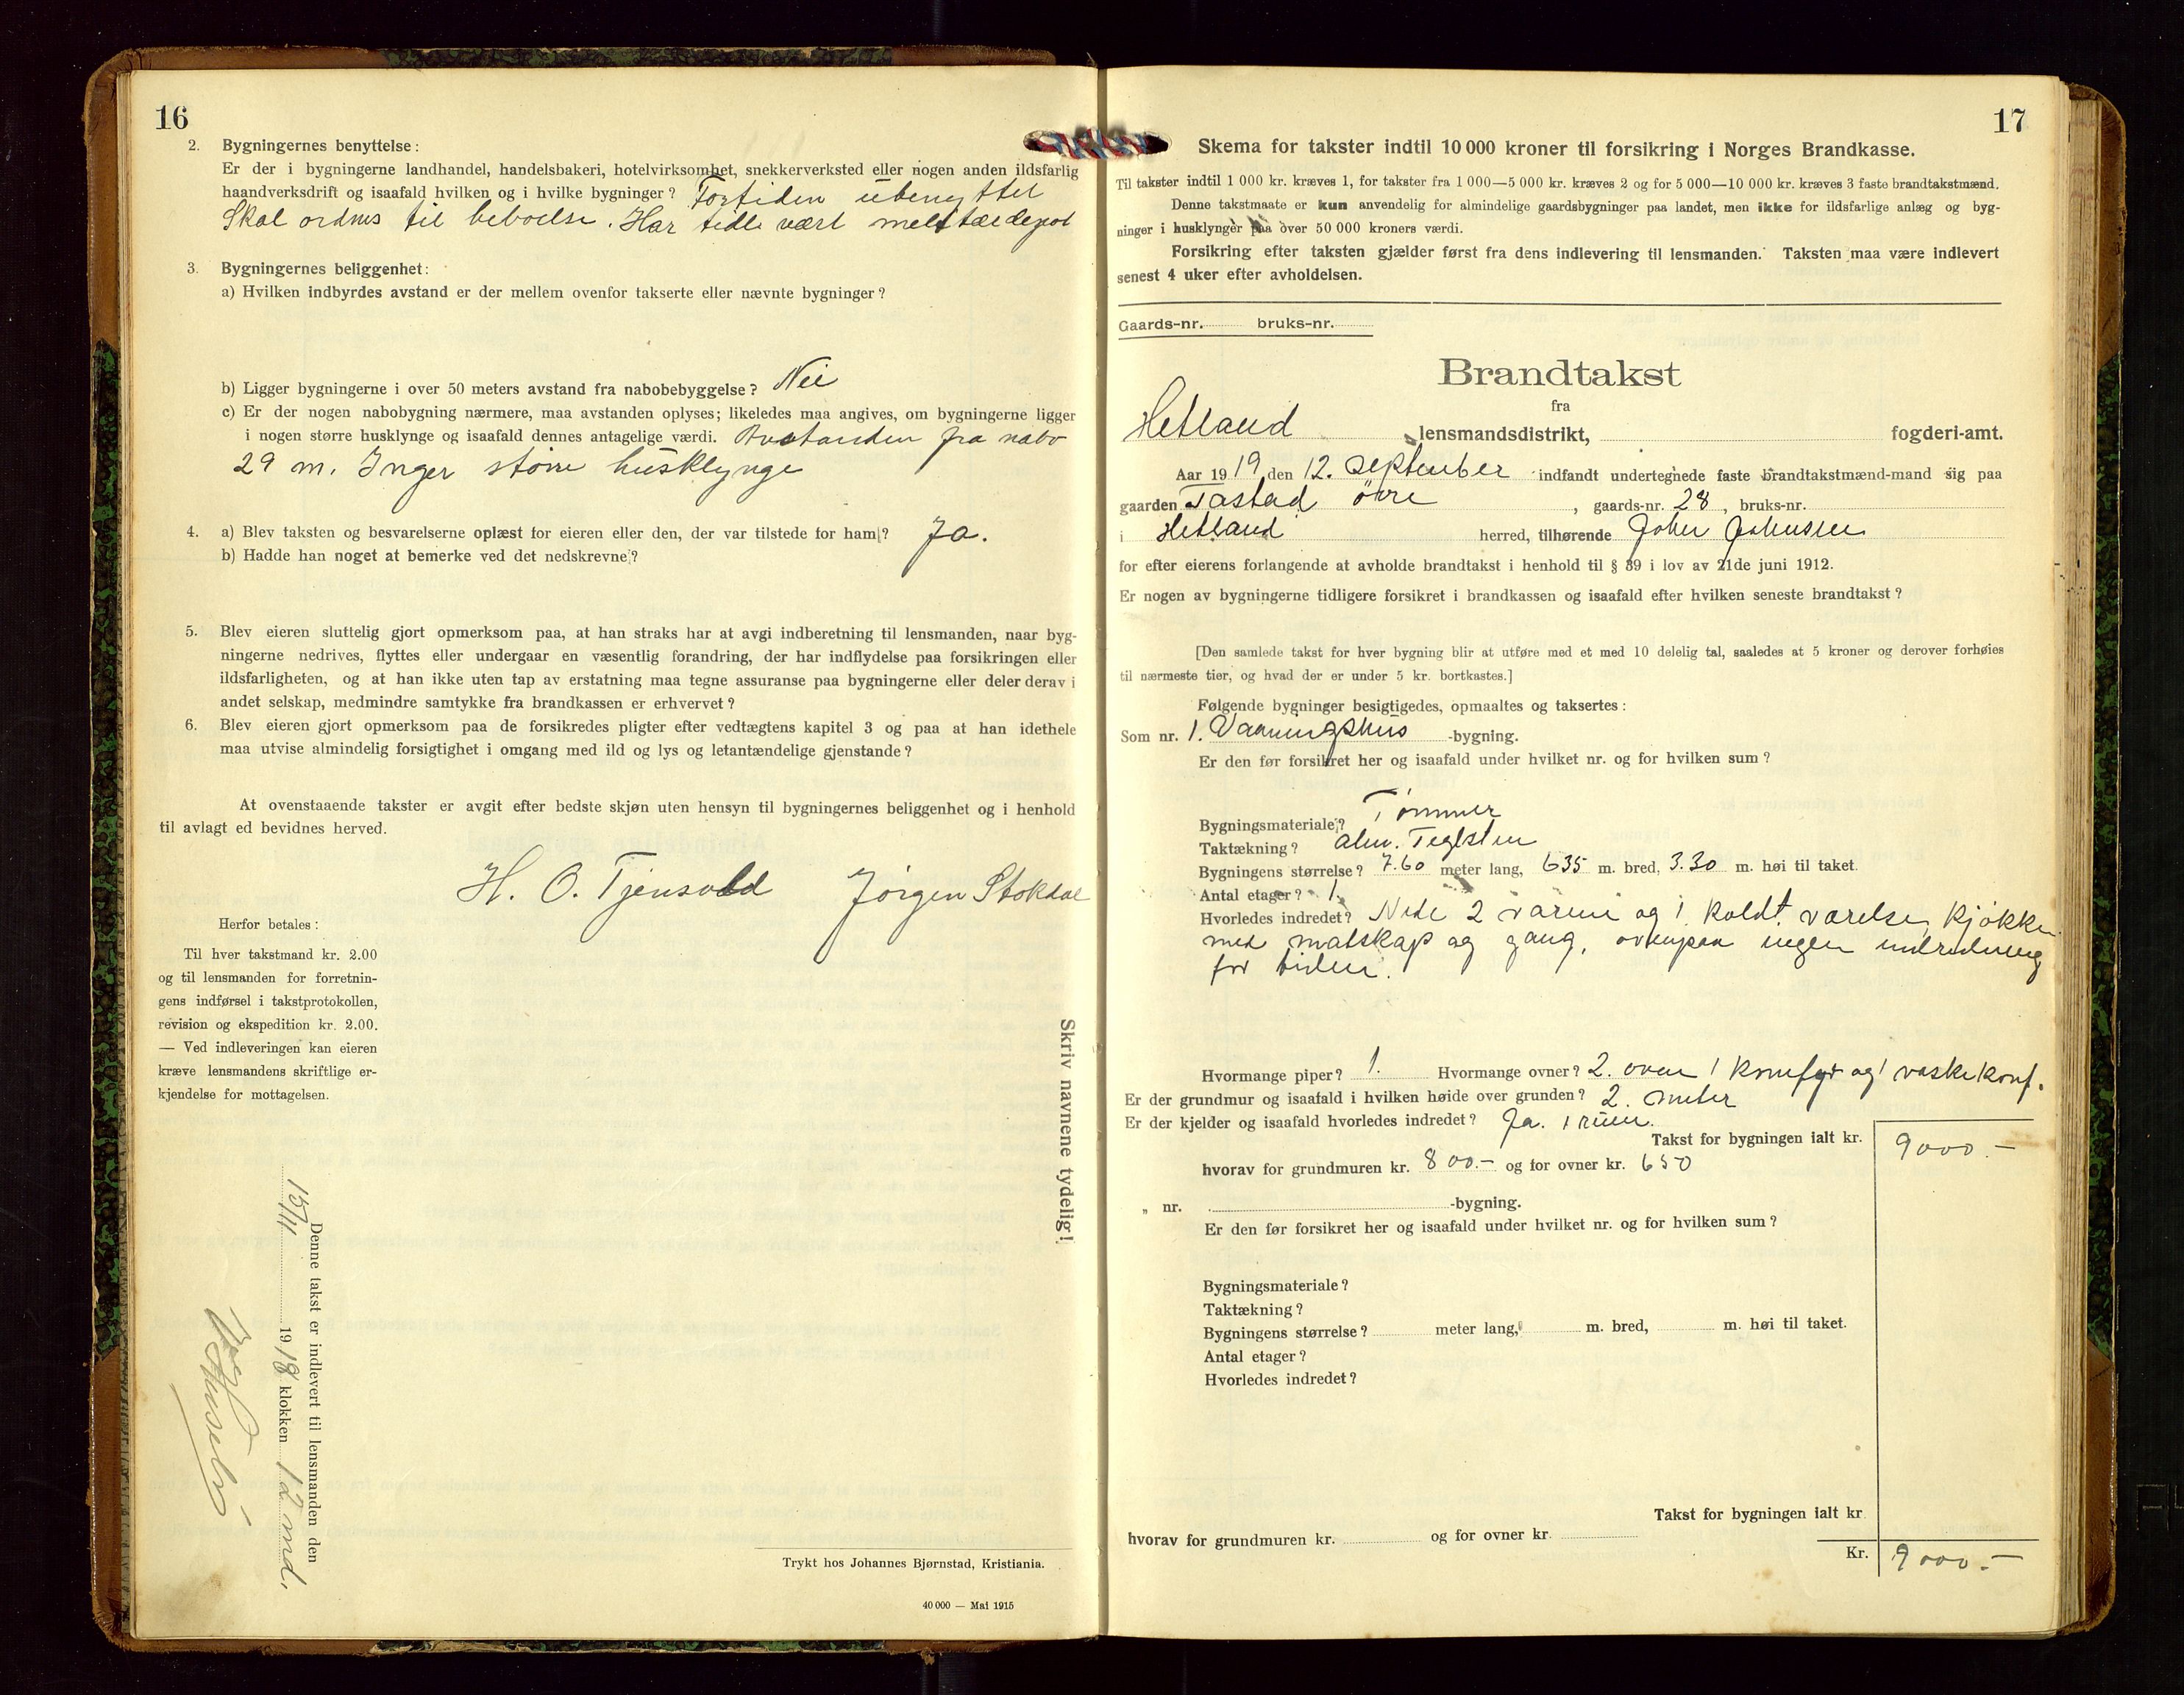 16
2. Bygningernes benyttelse:
Er der i bygningerne landhandel, handelsbakeri, hotelvirksomhet, snekkerverksted eller nogen anden ildsfarlig
haandverksdrift og isaafald hvilken og i hvilke bygninger? Fortiden ubenyttet
Skal ordnes til beboelse. Har tidl. vært
3. Bygningernes beliggenhet:
a) Hvilken indbyrdes avstand er der mellem ovenfor takserte eller nævnte bygninger?
b) Ligger bygningerne i over 50 meters avstand fra nabobebyggelse? Nei
c) Er der nogen nabobygning nærmere, maa avstanden oplyses; likeledes maa angives, om bygningerne ligger
i nogen større husklynge og isaafald dennes antagelige værdi. Avstanden fra nabo
29 m. Inger større husklynge
4. a) Blev taksten og besvarelserne oplæst for eieren eller den, der var tilstede for ham? Ja.
b) Hadde han noget at bemerke ved det nedskrevne?
5. Blev eieren sluttelig gjort opmerksom paa, at han straks har at avgi indberetning til lensmanden, naar byg-
ningerne nedrives, flyttes eller undergaar en væsentlig forandring, der har indflydelse paa forsikringen eller
ildsfarligheten, og at han ikke uten tap av erstatning maa tegne assuranse paa bygningerne eller deler derav i
andet selskap, medmindre samtykke fra brandkassen er erhvervet?
6. Blev eieren gjort opmerksom paa de forsikredes pligter efter vedtægtens kapitel 3 og paa at han idethele
maa utvise almindelig forsigtighet i omgang med ild og lys og letantændelige gjenstande?
At ovenstaaende takster er avgit efter bedste skjøn uten hensyn til bygningernes beliggenhet og i henhold
til avlagt ed bevidnes herved.
H. O. Tjensvold Jörgen Stokdal
Herfor betales:
Til hver takstmand kr. 2.00
og til lensmanden for forretnin-
gens indførsel i takstprotokollen,
revision og ekspedition kr. 2.00.
— Ved indleveringen kan eieren
kræve lensmandens skriftlige er-
kjendelse for mottagelsen.
Skriv navnene tydelig!
Denne takst er indlevert til lensmanden den
15/11 1918 klokken 12 md.
Trykt hos Johannes Bjørnstad, Kristiania.
40 000 — Mai 1915
17
Skema for takster indtil 10 000 kroner til forsikring i Norges Brandkasse.
Til takster indtil 1 000 kr. kræves 1, for takster fra 1 000—5 000 kr. kræves 2 og for 5 000—10 000 kr. kræves 3 faste brandtakstmænd.
Denne takstmaate er kun anvendelig for almindelige gaardsbygninger paa landet, men ikke for ildsfarlige anlæg og byg-
ninger i husklynger paa over 50 000 kroners værdi.
Forsikring efter taksten gjælder først fra dens indlevering til lensmanden. Taksten maa være indlevert
senest 4 uker efter avholdelsen.
Gaards-nr. bruks-nr.
Brandtakst
fra
Hetland lensmandsdistrikt, fogderi-amt.
Aar 1919, den 12. september indfandt undertegnede faste brandtakstmænd-mand sig paa
gaarden Tastad övre, gaards-nr. 28, bruks-nr.
i Hetland herred, tilhørende John Johnsen
for efter eierens forlangende at avholde brandtakst i henhold til § 39 i lov av 21de juni 1912.
Er nogen av bygningerne tidligere forsikret i brandkassen og isaafald efter hvilken seneste brandtakst?
[Den samlede takst for hver bygning blir at utføre med et med 10 delelig tal, saaledes at 5 kroner og derover forhøies
til nærmeste tier, og hvad der er under 5 kr. bortkastes.]
Følgende bygninger besigtigedes, opmaaltes og taksertes:
Som nr. 1. Vaaningshus -bygning.
Er den før forsikret her og isaafald under hvilket nr. og for hvilken sum?
Bygningsmateriale? Tömmer
Taktækning? alm. Teglsten
Bygningens størrelse? 7.60 meter lang, 635 m. bred, 3.30 m. høi til taket.
Antal etager? 1.
Hvorledes indredet? Nede 2 varme og 1 koldt værelse, kjökken
med matskap og gang, ovenpaa ingen indredning
for tiden.
Hvormange piper? 1. Hvormange ovner? 2. ovne 1 komfyr og 1 vaskekomf.
Er der grundmur og isaafald i hvilken høide over grunden? 2. meter
Er der kjelder og isaafald hvorledes indredet? Ja. 1 rum.
Takst for bygningen ialt kr. 9000.-
hvorav for grundmuren kr. 800.- og for ovner kr. 650
„ nr. -bygning.
Er den før forsikret her og isaafald under hvilket nr. og for hvilken sum?
Bygningsmateriale?
Taktækning?
Bygningens størrelse? meter lang, m. bred, m. høi til taket.
Antal etager?
Hvorledes indredet?
Takst for bygningen ialt kr
hvorav for grundmuren kr. og for ovner kr.
Kr. 9000.-